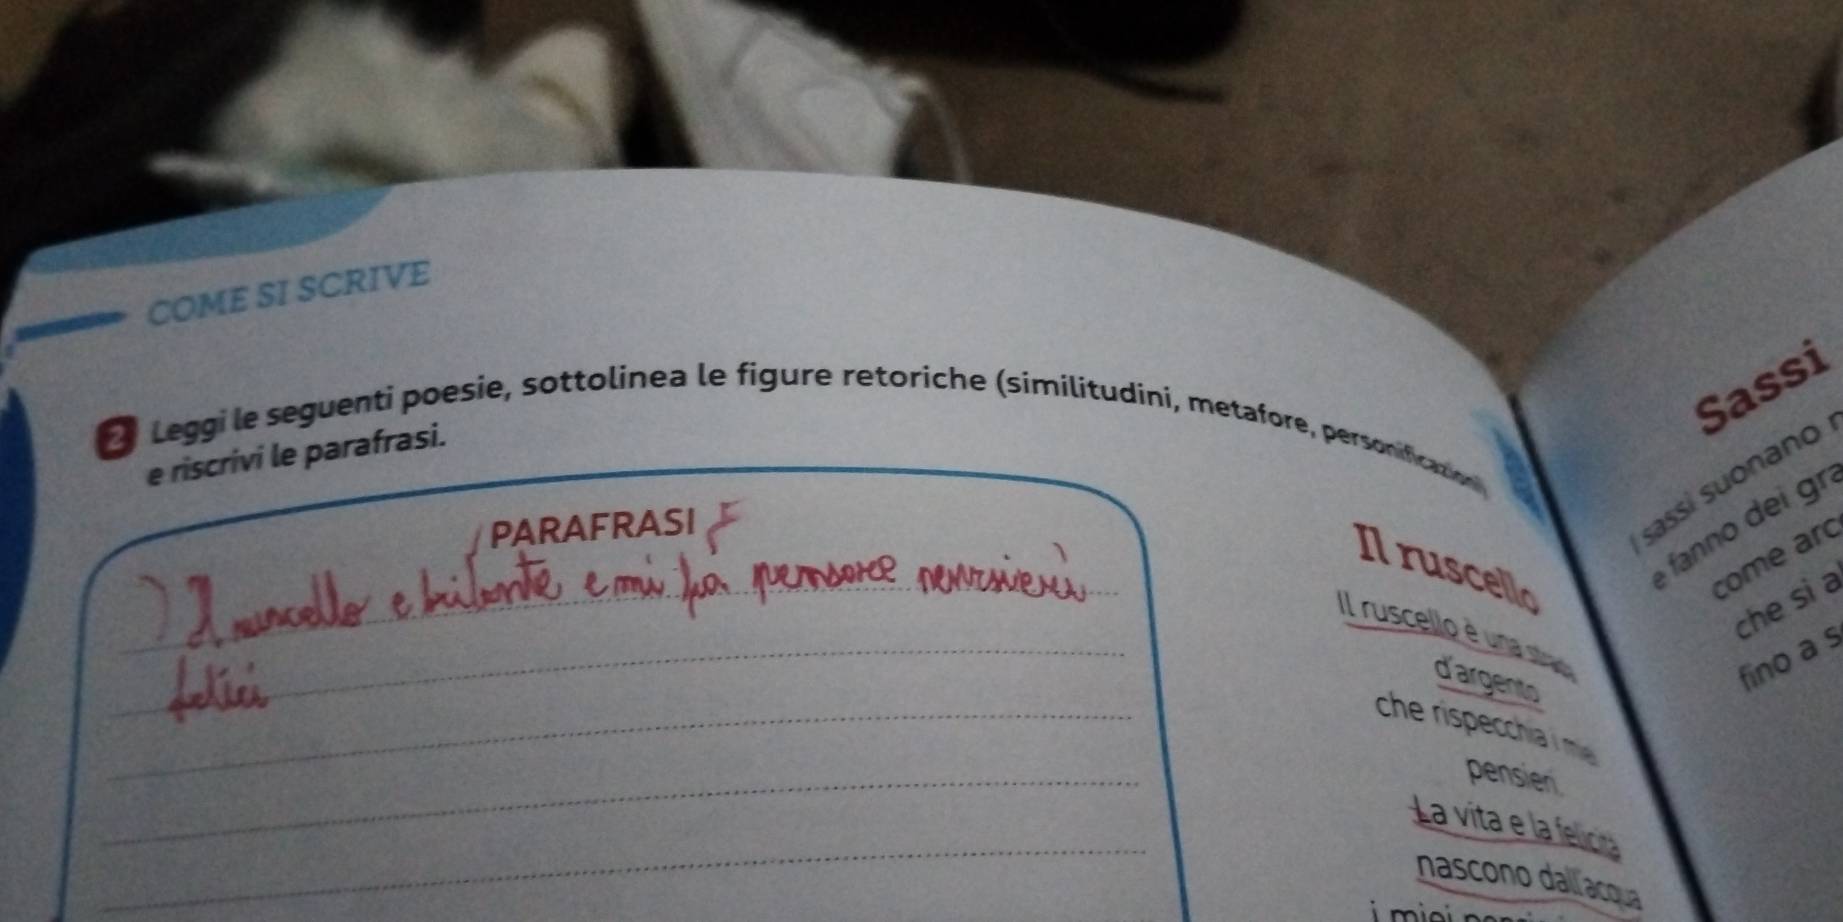 COME SI SCRIVE
2 Leggi le seguenti poesie, sottolinea le figure retoriche (similitudini, metafore, personificazioni)
e riscrivi le parafrasi.
PARAFRASI
Il ruscello e brilante e mi fa pensare
felici
Il ruscello
Il ruscello è una strada
d'argento
che rispecchia i miei
pensieri.
La vita e la felicità
nascono dall'acqua
i miei
Sassi
I sassi suonano
e fanno dei
come
che si
fino a